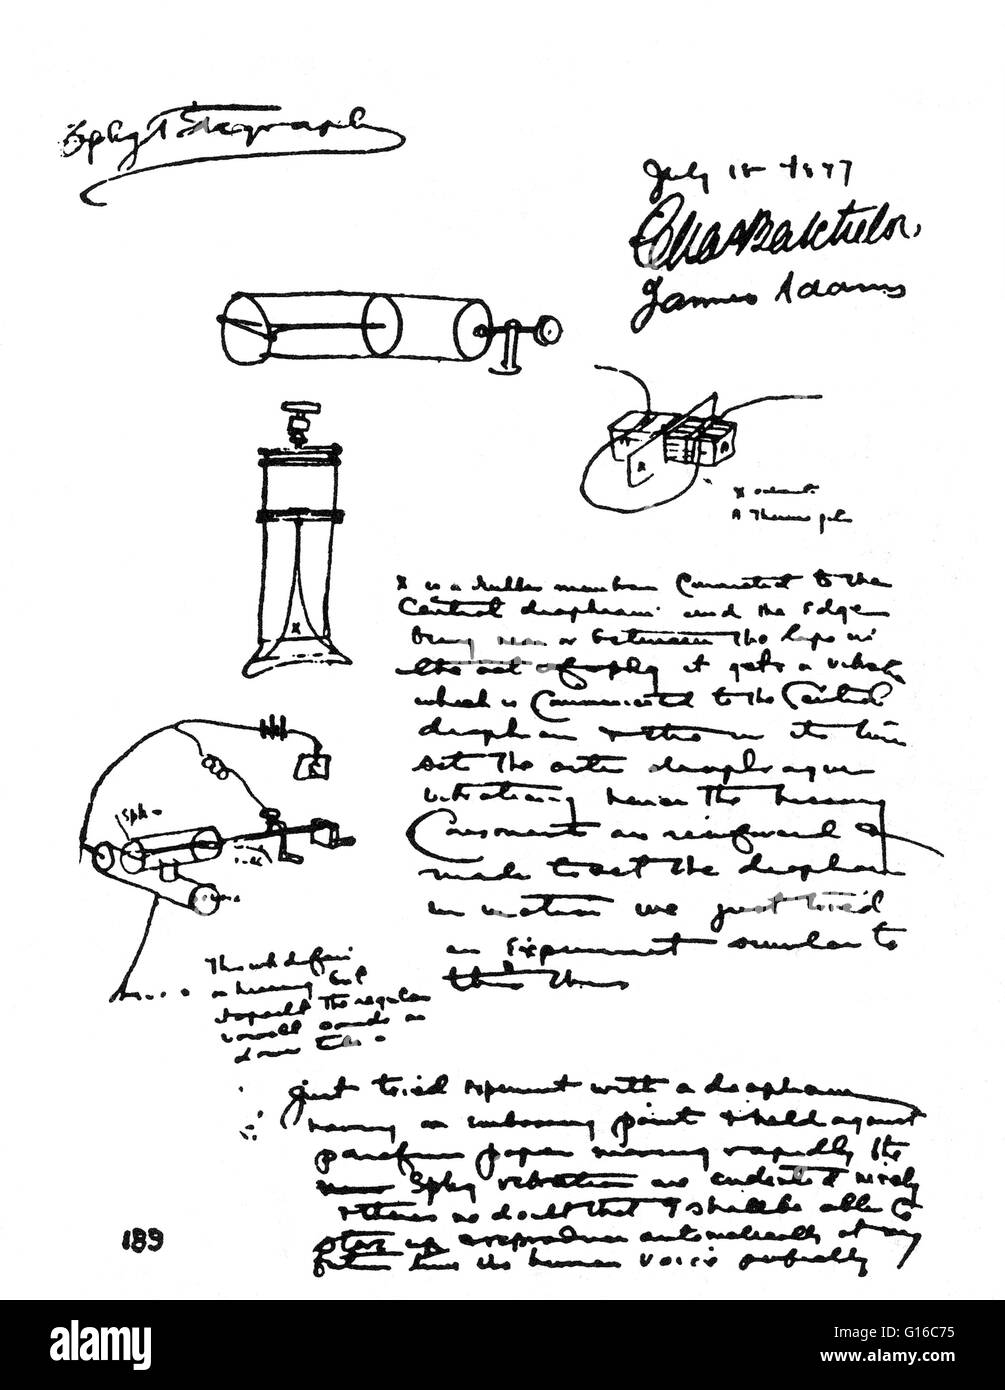 Spkg Telegraph
July 18 1877
Chas Batchelor.
James Adams
X
A
A
X
A Thermo pile
X is a rubber membrane connected to the
Central diaphram and the Edge
being near or between the lips in
the act of it gets a vibration
which is Communicated to the Central
diaphram & this in its turn
set the outer diaphragm
vibrating hence the hissing
Consonants are reinforced &
made to set the diaphram
in motion we just tried
an Experiment similar to
this
Spk
hissing but
the regular
vowell sounds as
Just tried experiment with a diaphram
having an embossing point & held against
parafin paper moving rapidly the
Spkg vibrations are indented nicely
& theres no doubt that I shall be able to
store up & reproduce automatically at any
future time the human voice perfectly
189
alamy
Image ID: G16C75
www.alamy.com